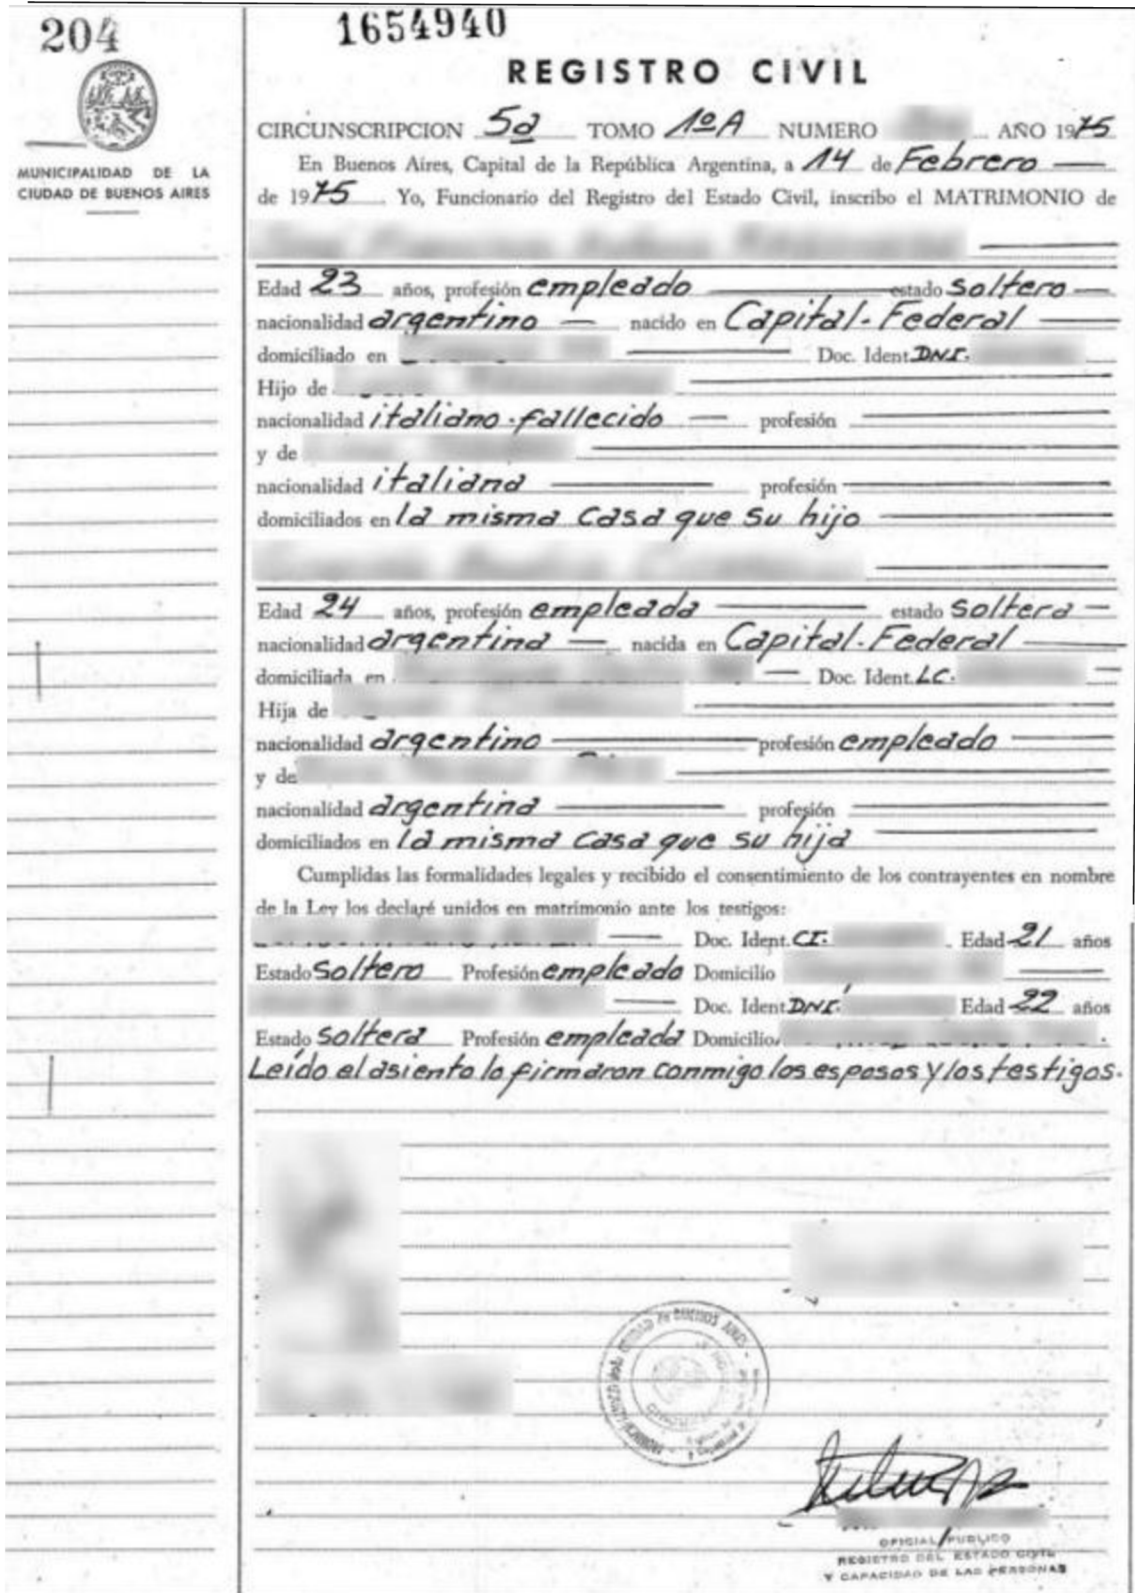 204
1654940
REGISTRO CIVIL
MUNICIPALIDAD DE LA
CIUDAD DE BUENOS AIRES
CIRCUNSCRIPCION 5a TOMO 1º A NUMERO AÑO 1975
En Buenos Aires, Capital de la República Argentina, a 14 de Febrero
de 1975 Yo, Funcionario del Registro del Estado Civil, inscribo el MATRIMONIO de
Edad 23 años, profesión empleado estado soltero
nacionalidad argentino nacido en Capital-Federal
domiciliado en Doc. Ident. DNI.
Hijo de
nacionalidad italiano-fallecido profesión
y de
nacionalidad italiana profesión
domiciliados en la misma casa que su hijo
Edad 24 años, profesión empleada estado soltera
nacionalidad argentina nacida en Capital-Federal
domiciliada en Doc. Ident. LC.
Hija de
nacionalidad argentino profesión empleado
y de
nacionalidad argentina profesión
domiciliados en la misma casa que su hija
Cumplidas las formalidades legales y recibido el consentimiento de los contrayentes en nombre
de la Ley los declaré unidos en matrimonio ante los testigos:
Doc. Ident. CI. Edad 21 años
Estado soltero Profesión empleado Domicilio
Doc. Ident. DNI. Edad 22 años
Estado soltera Profesión empleada Domicilio
Leído el asiento lo firmaron conmigo los esposos y los testigos.
CIUDAD DE BUENOS AIRES
OFICIAL PUBLICO
REGISTRO DEL ESTADO CIVIL
Y CAPACIDAD DE LAS PERSONAS